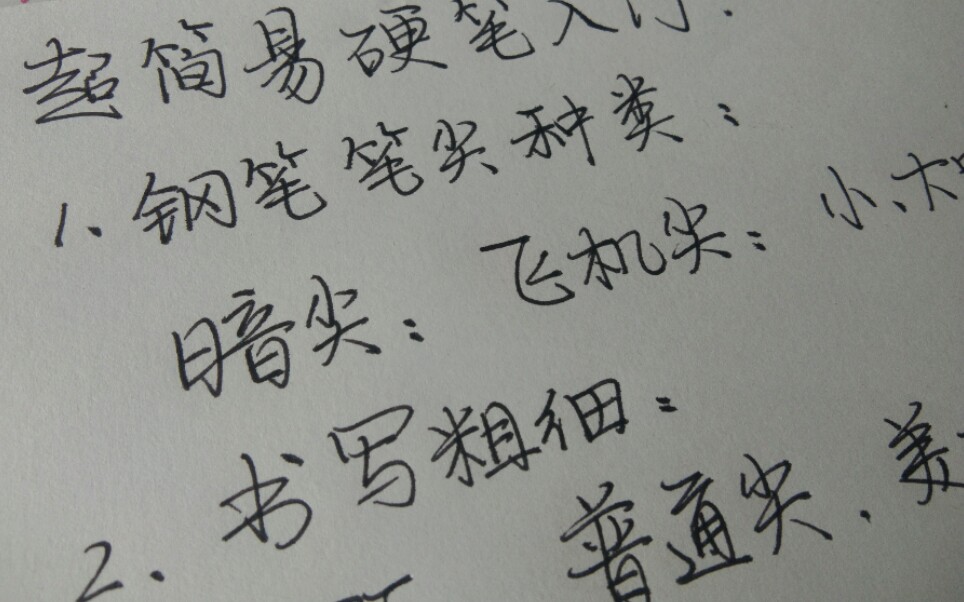 超简易硬笔入门：
1、钢笔笔尖种类：
暗尖： 飞机尖：小、大
2、书写粗细：
普通尖、美